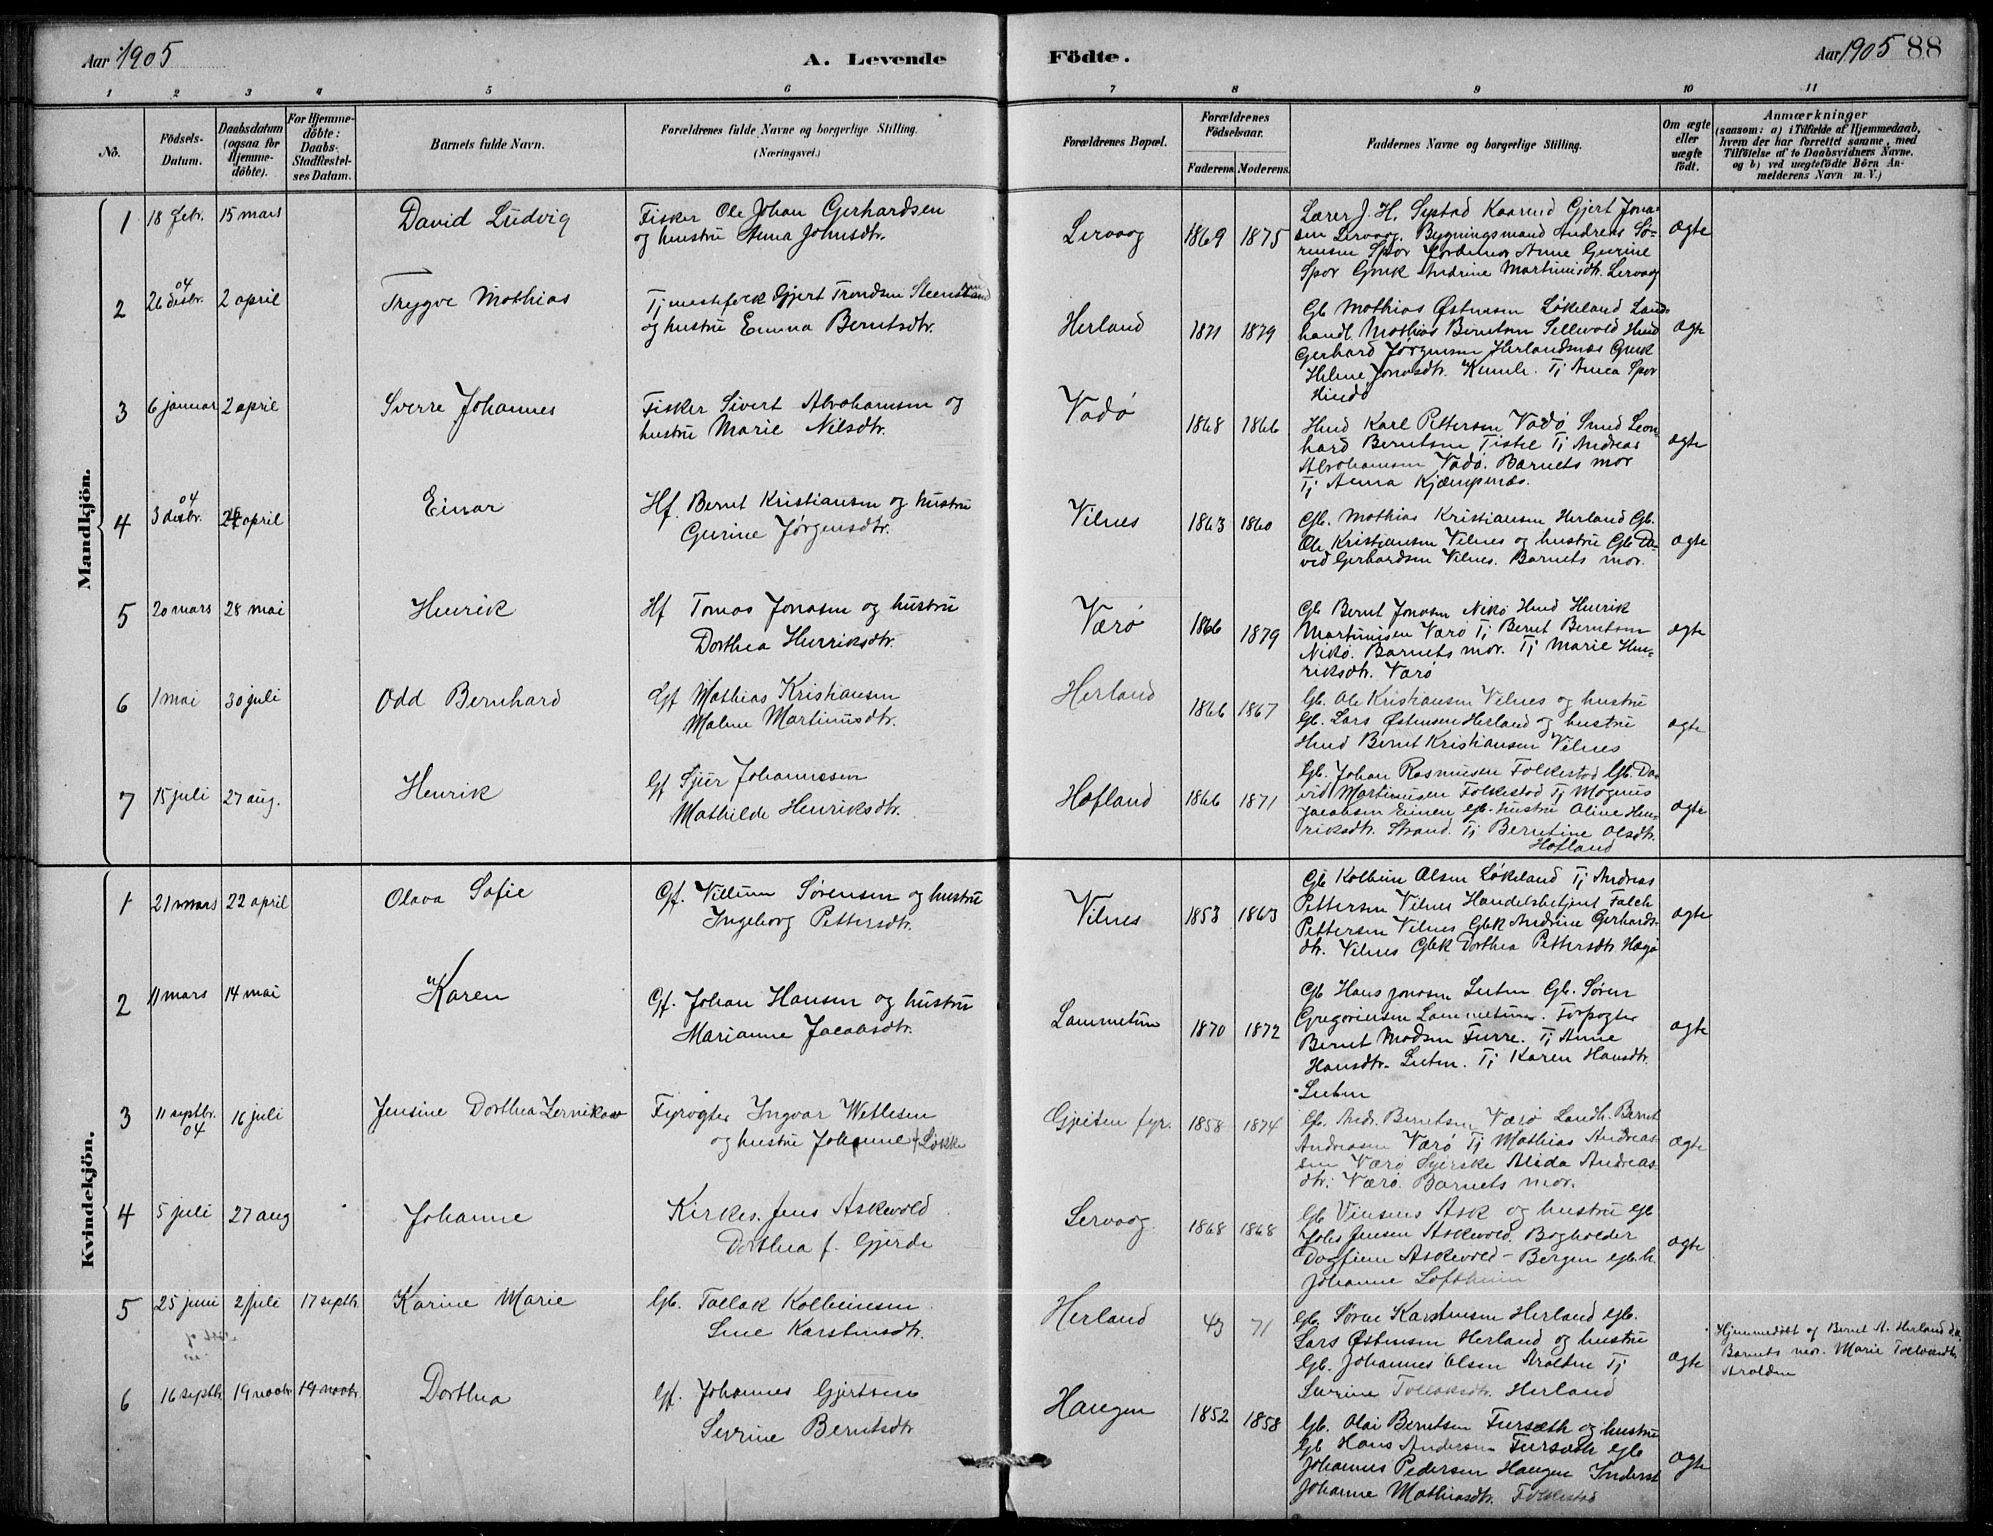 Aar 1905
A. Levende
Födte.
Aar 1905 88
1 2 3 4 5 6 7 8 9 10 11
No.
Födsels-
Datum.
Daabsdatum
(ogsaa for
Hjemme-
döbte).
For Hjemme-
döbte:
Daabs-
Stadfæstel-
ses Datum.
Barnets fulde Navn.
Forældrenes fulde Navne og borgerlige Stilling.
(Næringsvei.)
Forældrenes Bopæl.
Forældrenes
Födselsaar.
Faderens. Moderens.
Faddernes Navne og borgerlige Stilling.
Om ægte
eller
uægte
födt.
Anmærkninger
(saasom: a) i Tilfælde af Hjemmedaab,
hvem der har forrettet samme, med
Tilföielse af to Daabsvidners Navne,
og b) ved uægtefödte Börn An-
melderens Navn m. V.)
Mandkjön.
1 18 febr. 15 mars David Ludvig
Fisker Ole Johan Gerhardsen
og hustru Anna Johnsdtr.
Lervaag 1869 1875
Lærer J. H. Systad Gjert Jona-
sen Lervaag. Bygningsmand Andreas Sø-
rensen Spor Anne Gurine
Spor Gmk Andrine Martinusdtr. Lervaag
ægte
2 26 desbr. 04 2 april Trygve Mathias
Gjert Trondsen
og hustru Emma Berntsdtr.
Herland 1871 1879
Gb Mathias Østensen Løkeland Land-
handl. Mathias Berntsen Sellevold Hmd
Gerhard Jørgensen Herlandsnæs Gmk
Helene Jonasdtr. Tj Anna Spor
Hindø
ægte
3 6 januar 2 april Sverre Johannes
Fisker Sivert Abrahamsen og
hustru Marie Nilsdtr.
Vadø 1868 1866
Hmd Karl Pettersen Vadø Smed Leon-
hard Berntsen Tistel Tj Andreas
Abrahamsen Vadø. Barnets mor
Tj Anna Kjempenæs.
ægte
4 3 desbr. 04 april Einar
Hf. Bernt Kristiansen og hustru
Gurine Jørgensdtr.
Vilnes 1863 1860
Gb. Mathias Kristiansen Herland Gb.
Ole Kristiansen Vilnes og hustru Gb Da-
vid Gerhardsen Vilnes. Barnets mor.
ægte
5 20 mars 28 mai Henrik
Hf Tomas Jonasen og hustru
Dorthea Henriksdtr.
Værø 1866 1879
Gb Bernt Jonasen Nikø Hmd Henrik
Martinusen Værø Tj Bernt Berntsen
Nikø. Barnets mor. Tj Marie Hen-
riksdtr. Værø
ægte
6 1 mai 30 juli Odd Bernhard
Gf Mathias Kristiansen
Malene Martinusdtr.
Herland 1866 1867
Gb. Ole Kristiansen Vilnes og hustru
Gb. Lars Østensen Herland og hustru
Hmd Bernt Kristiansen Vilnes
ægte
7 15 juli 27 aug. Henrik
Gf Sjur Johannesen
Mathilde Henriksdtr.
Hofland 1866 1871
Gb. Johan Rasmusen Folkestad Gb. Da-
vid Martinusen Folkestad Tj Magnus
Jacobsen Eimen gb. hustru Oline Hen-
riksdtr. Strand. Tj Berntine Olsdtr.
Hofland
ægte
Kvindekjön.
1 21 mars 22 april Olava Sofie
Gf. Villum Sørensen og hustru
Ingeborg Pettersdtr.
Vilnes 1853 1863
Gb Kolbein Olsen Løkeland Tj Andreas
Pettersen Vilnes Handelsbetjent Falch
Pettersen Vilnes Gbk Andrine Gerhards-
dtr. Vilnes Gbk Dorthea Pettersdtr Hagø
ægte
2 11 mars 14 mai Karen
Gf. Johan Hansen og hustru
Marianne Jacobsdtr.
Lammetun 1870 1872
Gb Hans Jonasen Luten Gb. Søren
Gregoriusen Lammetun. Forpagter
Bernt Madsen Furre. Tj Anne
Hansdtr. Luten. Tj Karen Hansdtr.
Luten
ægte
3 11 septbr. 04 16 juli Jensine Dorthea
Fyrvogter Ingvar Wetlesen
og hustru Johanne f.
Gjeiten fyr. 1858 1874
Gb. Andr. Berntsen Værø Landh. Bernt
Andreasen Værø Tj Mathias Andreas-
sen Værø Syerske Alida Andreas-
dtr. Værø. Barnets mor.
ægte
4 5 juli 27 aug Johanne
Kirkes. Jens Askevold
Dorthea f. Gjerde
Lervaag. 1868 1868
Gb Vinsens Ask og hustru gb
Johs Jensen Askevold. Bogholder
Dagfinn Askevold - Bergen gb. k.
Johanne Loftheim
ægte
5 25 juni 2 juli 17 septbr. Karine Marie
Gb. Tollak Kolbeinsen
Line Karstensdtr.
Herland 43 71
Gb. Søren Karstensen Herland gb.
Lars Østensen Herland og hustru
Gb. Johannes Olsen Aralden Tj
Surine Tollaksdtr. Herland
ægte
Hjemmedøbt af Bernt A. Herland
Barnets mor. Marie
Aralden
6 16 septbr 19 novbr. 19 novbr. Dorthea
Gf. Johannes Gjertsen
Sevrine Berntsdtr
Haugen 1852 1858
Gb. Olai Berntsen Fursæth og hustru
Gb Hans Andersen Fursæth gb
Johannes Pedersen Haugen
Johanne Mathiasdtr. Folkestad
ægte